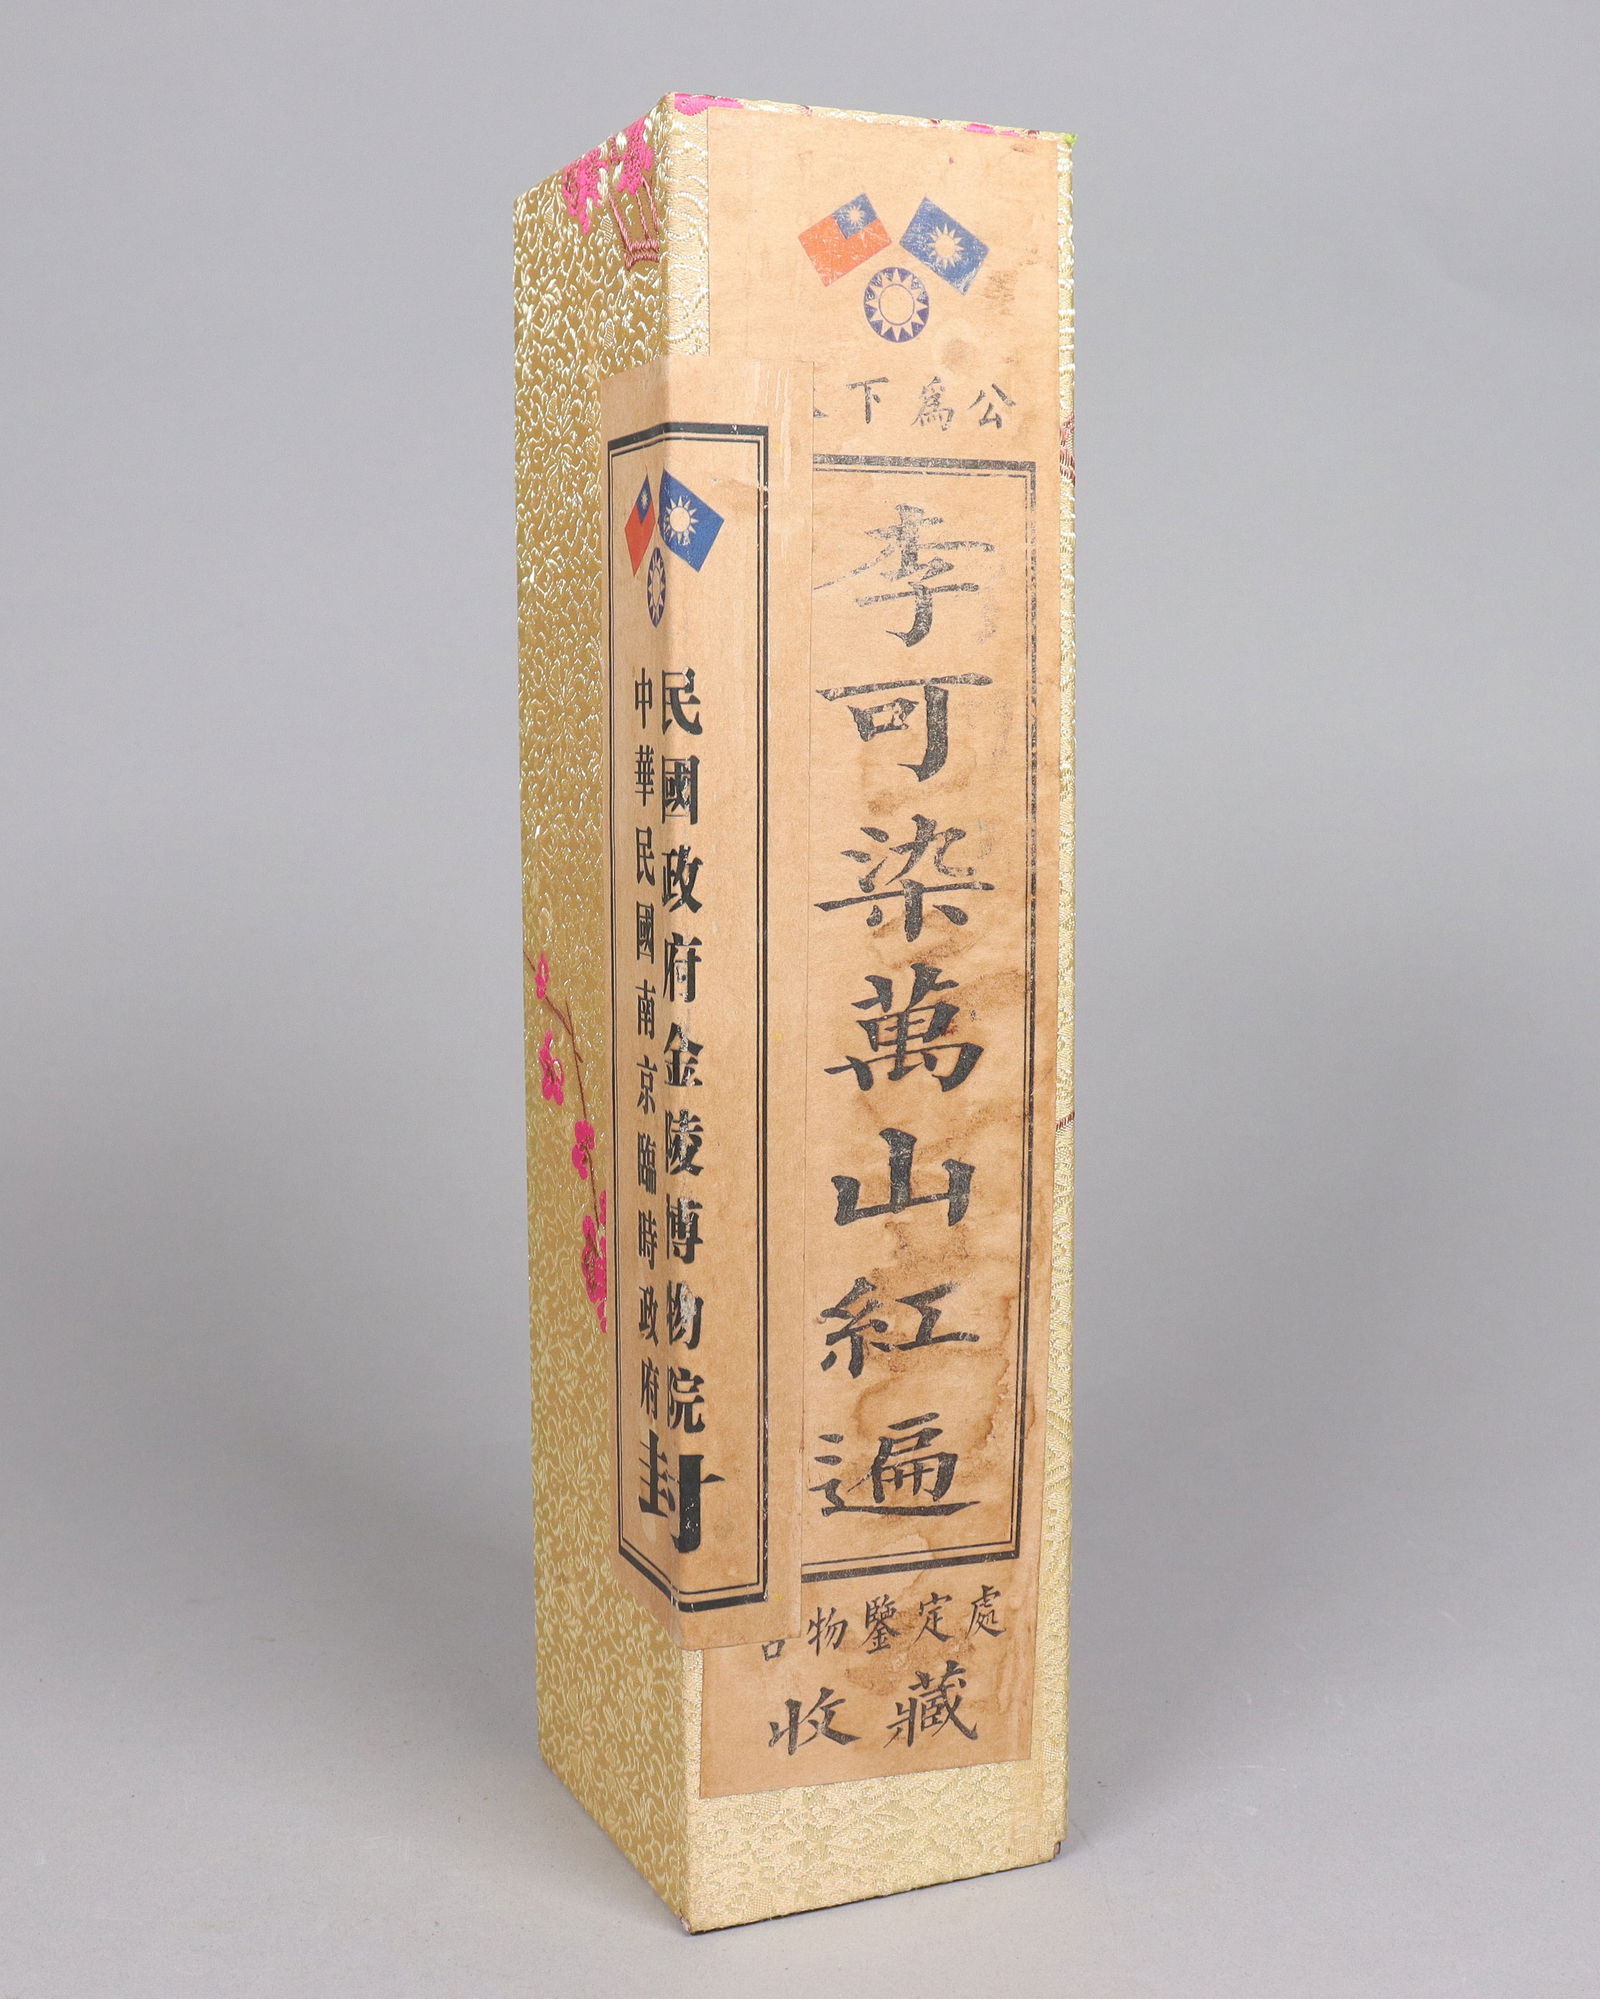 下為公
李可染萬山紅遍
物鑒定處
收藏
民國政府金陵博物院
中華民國南京臨時政府
封